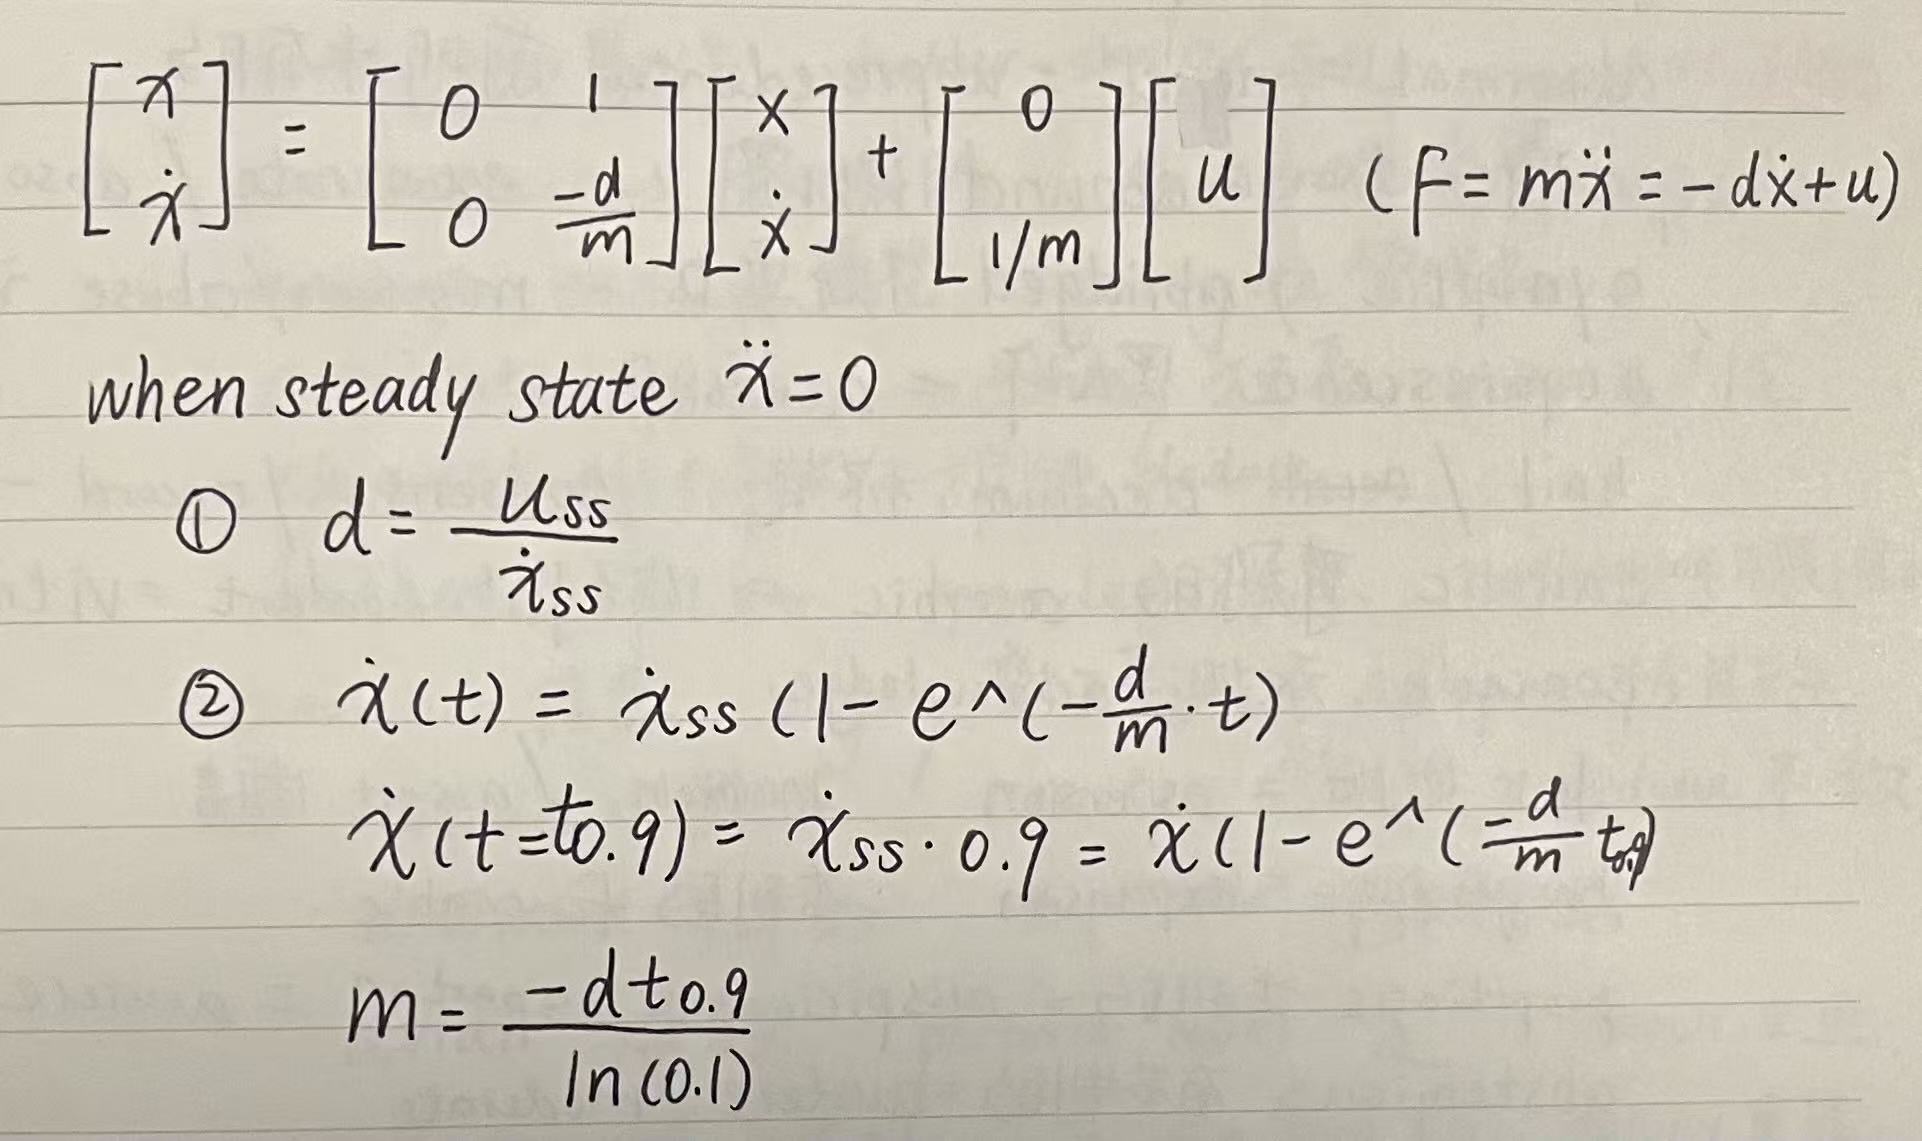 [x ẋ] = [0 1 0 -d/m] [x ẋ] + [0 1/m] [u] (F = mẍ = -dẋ+u)
when steady state ẍ=0
① d = uss/ẋss
② ẋ(t) = ẋss (1- e^(-d/m·t)
ẋ(t=t0.9) = ẋss·0.9 = ẋ(1-e^(-d/m t0.9)
m = -dt0.9/ln(0.1)